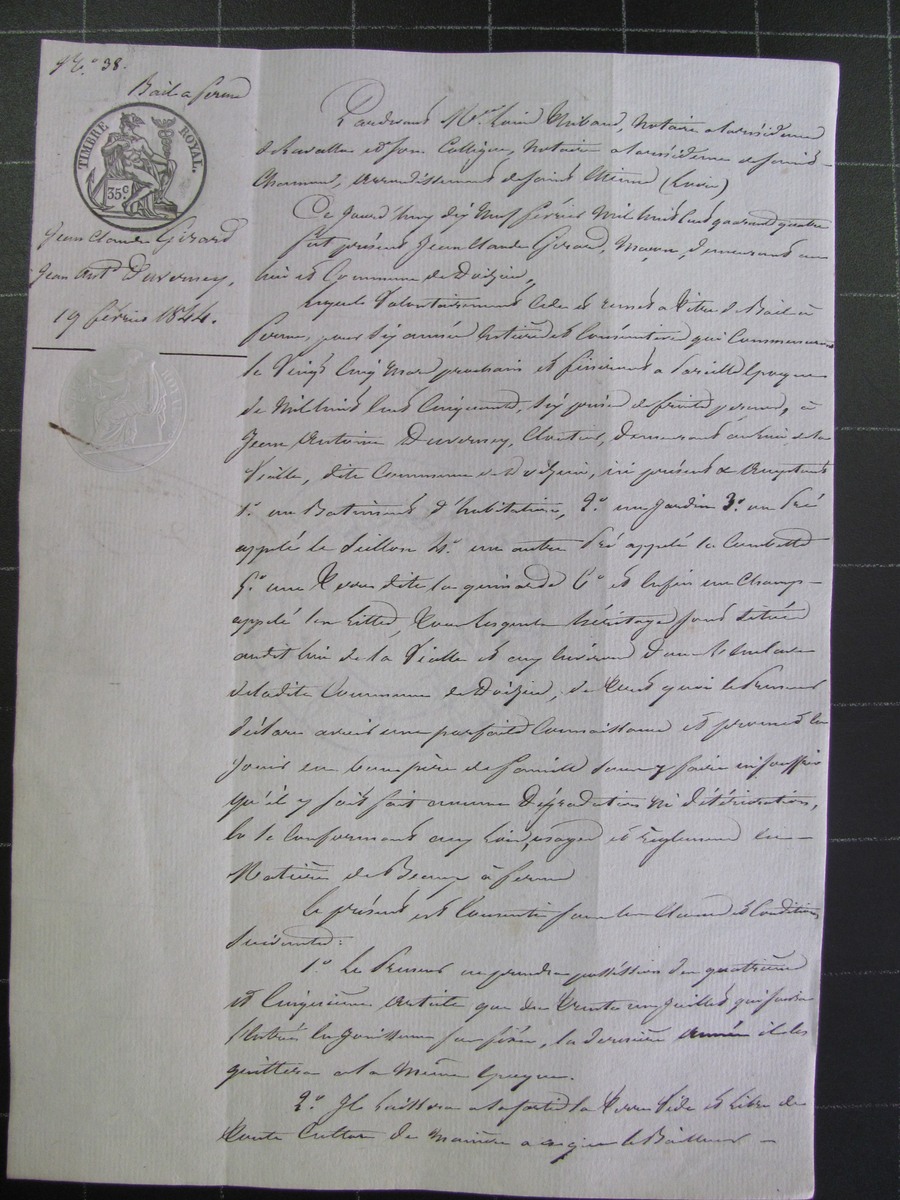 N.° 38.
Bail a ferme
TIMBRE ROYAL.
35c
Jean Claude Girard
Jean Ant.e Duvernay,
19 février 1844.
Pardevant M.e Louis Thibaud, Notaire a la résidence
de Lavalla et son Collègue, Notaire a la résidence de Saint
Chamond, arrondissement de Saint Etienne (Loire)
Ce Jourd'huy dix Neuf février Mil huit cent quarante quatre
fut présent Jean Claude Girard, Maçon, demeurant au
lieu et Commune de Doizieu,
Lequel Volontairement Cède et remet a Titre de Bail à
Ferme, pour Six année Entière et Consécutive qui Commenceront
le Vingt Cinq Mars prochain et finiront a Pareille Epoque
de Mil huit Cent Cinquante, Six prise de fruits perçus, à
Jean Antoine Duvernay, Cloutier, Demeurant au lieu de la
Vialle, dite Commune de Doizieu, ici présent et acceptant
1.° un Batiment d'habitation, 2.° un Jardin 3.° un Pré
appelé le Seillon 4.° un autre Pré appelé la Combette
5.° une Terre dite la 6.° et Enfin un Champ
appelé, Tous lesquels héritages sont situés
audit lieu de la Vialle et aux Environs Dans l'Enclave
de ladite Commune de Doizieu, de Tout quoi le Preneur
déclare avoir une parfaite Connaissance et promet en
Jouir en bon père de famille Sans y faire ni souffrir
qu'il y soit fait aucune Dégradation Ni détérioration,
en se Conformant aux Lois, usages et Règlement en
Matière de Beaux à ferme
Le présent est Consenti sous les Clauses et Conditions
Suivantes:
1.° Le Preneur ne prendra possession des quatrième
et Cinquième Article que du Trente un Juillet qui suivra
l'Entrée en Jouissance, la dernière année il les
quittera a la Même Epoque.
2.° Il laissera a la sortie la Terre Vide et Libre de
Toute Culture de Manière a ce que le Bailleur